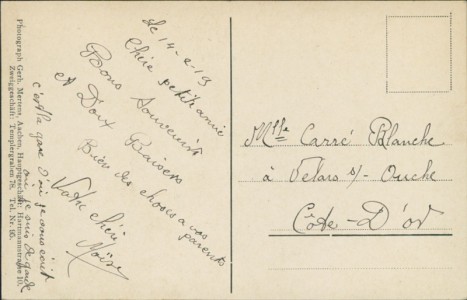 le 14-2-19
Chère petite amie
Bons Souvenirs
et Doux Baisers
Bien des choses a vos
parents
Votre chérie
c'est la gare d'où je vous écris
où je suis de garde
Mlle Carré Blanche
à Velars s/- Ouche
Côte-D'or
Photograph Gerh. Mertens, Aachen, Hauptgeschäft: Hartmannstrasse 10.
Zweiggeschäft: Templergraben 78. Tel. Nr.